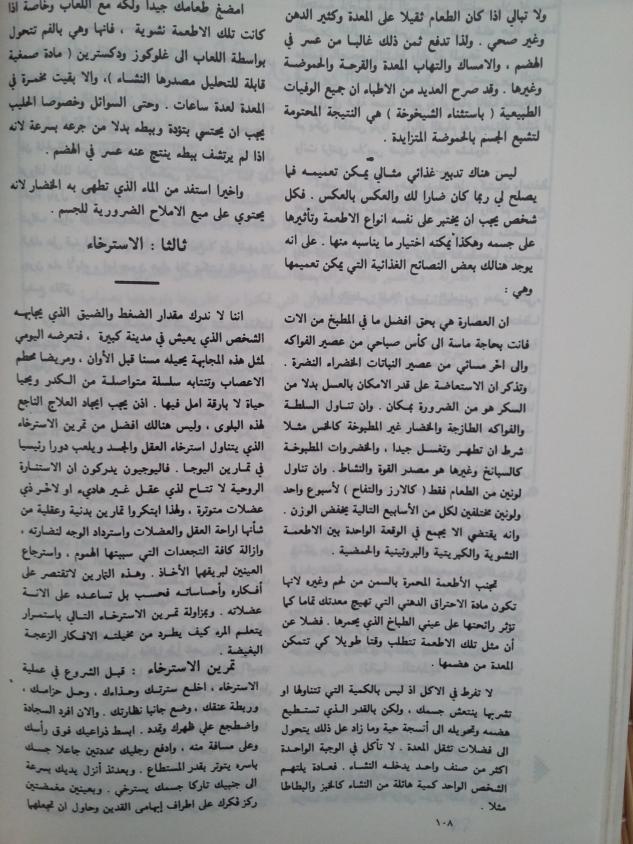 ولا تبالي اذا كان الطعام ثقيلا على المعدة وكثير الدهن
وغير صحي . ولذا تدفع ثمن ذلك غالبا من عسر في
الهضم ، والامساك والتهاب المعدة والقرحة والحموضة
وغيرها . وقد صرح العديد من الاطباء ان جميع الوفيات
الطبيعية ( باستثناء الشيخوخة ) هي النتيجة المحتومة
لتشبع الجسم بالحموضة المتزايدة .
ليس هناك تدبير غذائي مثالي يمكن تعميمه فما
يصلح لي ربما كان ضارا لك والعكس بالعكس . فكل
شخص يجب ان يختبر على نفسه انواع الاطعمة وتأثيرها
على جسمه وهكذا يمكنه اختيار ما يناسبه منها . على انه
يوجد هنالك بعض النصائح الغذائية التي يمكن تعميمها
وهي :
ان العصارة هي بحق افضل ما في المطبخ من الات
فانت بحاجة ماسة الى كأس صباحي من عصير الفواكه
والى اخر مسائي من عصير النباتات الخضراء النضرة .
وتذكر ان الاستعاضة على قدر الامكان بالعسل بدلا من
السكر هو من الضرورة بمكان . وان تناول السلطة
والفواكه الطازجة والخضار غير المطبوخة كالخس مثلا
شرط ان تطهر وتغسل جيدا ، والخضروات المطبوخة
كالسبانخ وغيرها هو مصدر القوة والنشاط . وان تناول
لونين من الطعام فقط ( كالارز والتفاح ) لأسبوع واحد
ولونين مختلفين لكل من الأسابيع التالية يخفض الوزن .
وانه يقتضي الا يجمع في الوقعة الواحدة بين الاطعمة
النشوية والكبريتية والبروتينية والحمضية .
تجنب الأطعمة المحمرة بالسمن من لحم وغيره لانها
تكون مادة الاحتراق الدهني التي تهيج معدتك تماما كما
تؤثر رائحتها على عيني الطباخ الذي يحمرها . فضلا عن
أن مثل تلك الاطعمة تتطلب وقتا طويلا كي تتمكن
المعدة من هضمها .
لا تفرط في الاكل اذ ليس بالكمية التي تتناولها او
تشربها ينتعش جسمك ، ولكن بالقدر الذي تستطيع
هضمه وتحويله الى أنسجة حية وما زاد عل ذلك يتحول
الى فضلات تثقل المعدة . لا تأكل في الوجبة الواحدة
اكثر من صنف واحد يدخله النشاء . فعادة يلتهم
الشخص الواحد كمية هائلة من النشاء كالخبز والبطاطا
مثلا .
امضغ طعامك جيدا ولكه مع اللعاب وخاصة اذا
كانت تلك الاطعمة نشوية ، فانها وهي بالفم تتحول
بواسطة اللعاب الى غلوكوز ودكسترين ( مادة صمغية
قابلة للتحليل مصدرها النشاء ) ، والا بقيت مخمرة في
المعدة لعدة ساعات . وحتى السوائل وخصوصا الحليب
يجب ان يحتسي بتؤدة وببطء بدلا من جرعه بسرعة لانه
اذا لم يرتشف ببطء ينتج عنه عسر في الهضم .
واخيرا استفد من الماء الذي تطهى به الخضار لانه
يحتوي على ميع الاملاح الضرورية للجسم .
ثالثا : الاسترخاء
اننا لا ندرك مقدار الضغط والضيق الذي يجابهه
الشخص الذي يعيش في مدينة كبيرة ، فتعرضه اليومي
لمثل هذه المجابهة يحيله مسنا قبل الأوان ، ومريضا محطم
الاعصاب وتنتابه سلسلة متواصلة من الكدر ويحيا
حياة لا بارقة امل فيها . اذن يجب ايجاد العلاج الناجع
لهذه البلوى ، وليس هنالك افضل من تمرين الاسترخاء
الذي يتناول استرخاء العقل والجسد ويلعب دورا رئيسيا
في تمارين اليوجا . فاليوجيون يدركون ان الاستنارة
الروحية لا تتاح لذي عقل غير هاديء او لاخر ذي
عضلات متوترة ، ولهذا ابتكروا تمارين بدنية وعقلية من
شأنها اراحة العقل والعضلات واسترداد الوجه لنضارته ،
وازالة كافة التجعدات التي سببتها الهموم ، واسترجاع
العينين لبريقهما الأخاذ . وهذه التمارين لاتقتصر على
أفكاره وأحساساته فحسب بل تساعده على الانة
عضلاته . وبمزاولة تمرين الاسترخاء التالي باستمرار
يتعلم المرء كيف يطرد من مخيلته الافكار الزعجة
البغيضة .
تمرين الاسترخاء : قبل الشروع في عملية
الاسترخاء ، اخلع سترتك وحذاءك ، وحل حزامك ،
وربطة عنقك ، وضع جانبا نظارتك . والان افرد السجادة
واضطجع على ظهرك وتمدد . ابسط ذراعيك فوق رأسك
وعلى مسافة منه ، وادفع رجليك ممدودتين جاعلا جسمك
باسره يتوتر بقدر المستطاع . وبعدئذ أنزل يديك بسرعة
الى جنبيك تاركا جسمك يسترخي . وبعينين مغمضتين
ركز فكرك على اطراف إبهامي القدمين وحاول ان تجعلهما
١٠٨